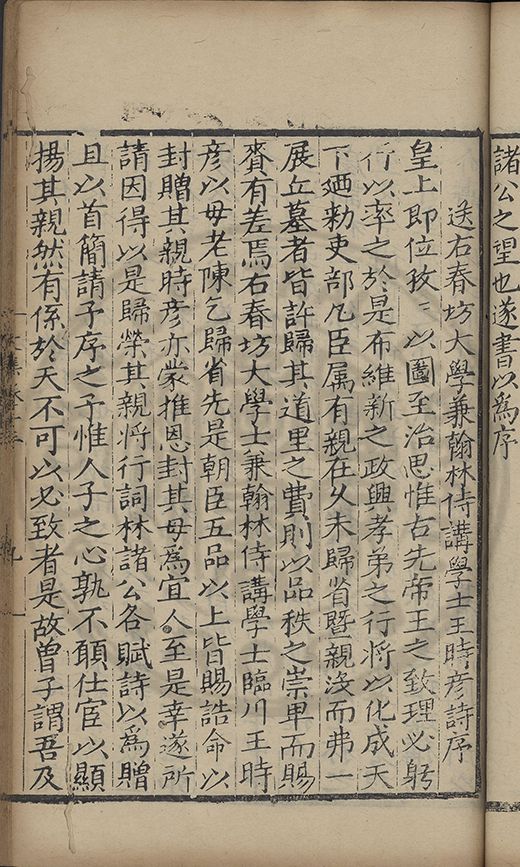 諸公之望也遂書以為序
送右春坊大學兼翰林侍講學士王時彦詩序
皇上即位孜〻以圖至治思惟古先帝王之致理必躬
行以率之於是布維新之政興孝弟之行將以化成天
下廼勑吏部凡臣属有親在乆未歸省暨親沒而弗一
展丘墓者皆許歸其道里之費則以品秩之崇卑而賜
賚有差焉右春坊大學士兼翰林侍講學士臨川王時
彦以母老陳乞歸省先是朝臣五品以上皆賜誥命以
封贈其親時彦亦蒙推恩封其母為宜人至是幸遂所
請因得以是歸榮其親將行詞林諸公各賦詩以為贈
且以首簡請予序之予惟人子之心孰不願仕宦以顯
揚其親然有係於天不可以必致者是故曾子謂吾及